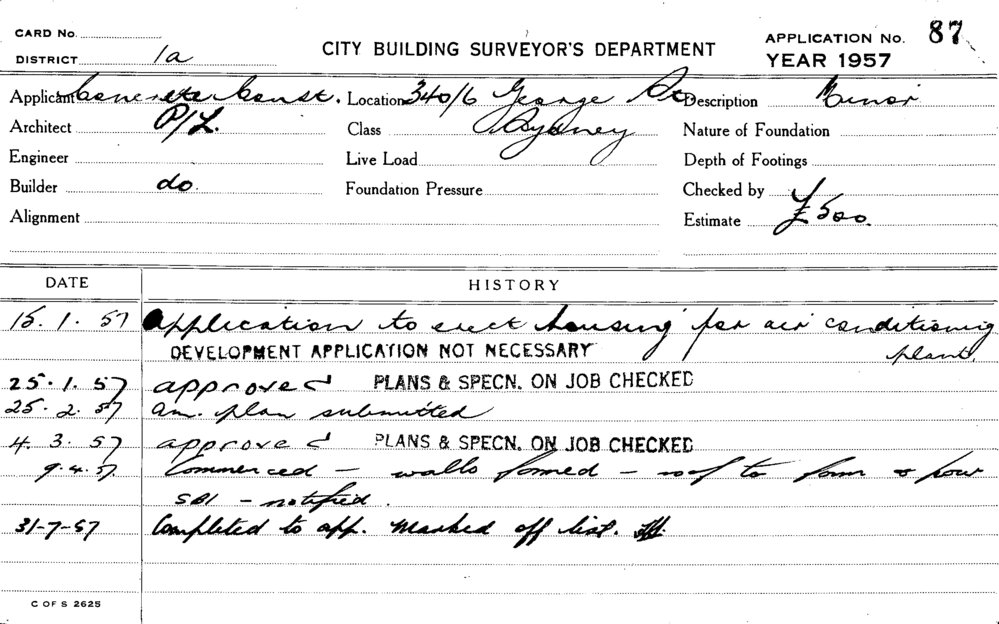 CARD No.
DISTRICT 1a
CITY BUILDING SURVEYOR'S DEPARTMENT
APPLICATION No. 87
YEAR 1957
Applicant Concrete Const. Location 340/6 George St Description Minor
Architect P/L. Class Sydney Nature of Foundation
Engineer Live Load Depth of Footings
Builder do. Foundation Pressure Checked by
Alignment Estimate £500.
DATE HISTORY
15.1.57 Application to erect housing for air conditioning
DEVELOPMENT APPLICATION NOT NECESSARY plant.
25.1.57 approved PLANS & SPECN. ON JOB CHECKED
25.2.57 am. plan submitted
4.3.57 approved PLANS & SPECN. ON JOB CHECKED
9.4.57. Commenced - walls formed - roof to form & pour
SBI - notified.
31-7-57 Completed to app. Marked off list.
C OF S 2625